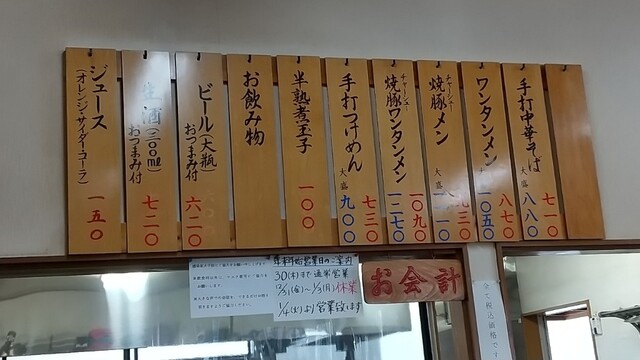 手打中華そば 七一〇
大盛 八八〇
ワンタンメン 八七〇
大盛 一〇五〇
チャーシュー
焼豚メン 九三〇
大盛 一一一〇
チャーシュー
焼豚ワンタンメン 一〇九〇
大盛 一二七〇
手打つけめん 七三〇
大盛 九〇〇
半熟煮玉子 一〇〇
お飲み物
ビール(大瓶)
おつまみ付 六二〇
生酒(三〇〇ml)
おつまみ付 七二〇
ジュース
(オレンジ・サイダー・コーラ) 一五〇
年末年始営業日のご案内
30(木)まで通常営業
12/31(金)〜1/3(月)休業
1/4(火)より営業致します
お会計
全て税込価格です